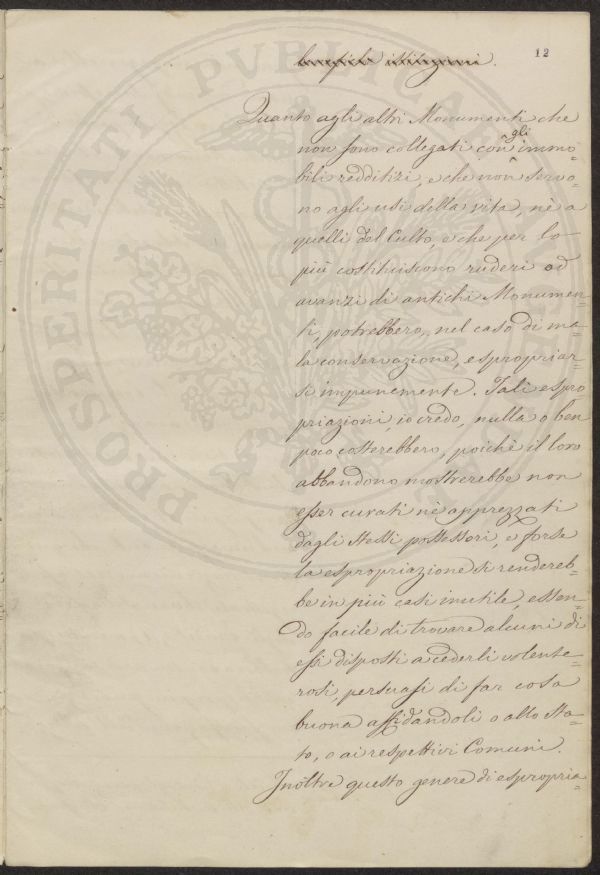 12
Quanto agli altri Monumenti che
non sono collegati con gli immo=
bili redditizi, e che non servo=
no agli usi della vita, nè a
quelli del Culto, e che per lo
più costituiscono ruderi od
avanzi di antichi Monumen=
ti, potrebbero, nel caso di ma=
la conservazione, espropriar=
si impunemente. Tali espro
priazioni io credo, nulla o ben
poco costerebbero, poichè il loro
abbandono mostrerebbe non
esser curati nè apprezzati
dagli stessi possessori, e forse
la espropriazione si rendereb=
be in più casi inutile, essen=
do facile di trovare alcuni di
essi disposti a cederli volente=
rosi, persuasi di far cosa
buona affidandoli o allo Sta=
to, o ai respettivi Comuni.
Inoltre questo genere di espropria=
PROSPERITATI PUBLICAE